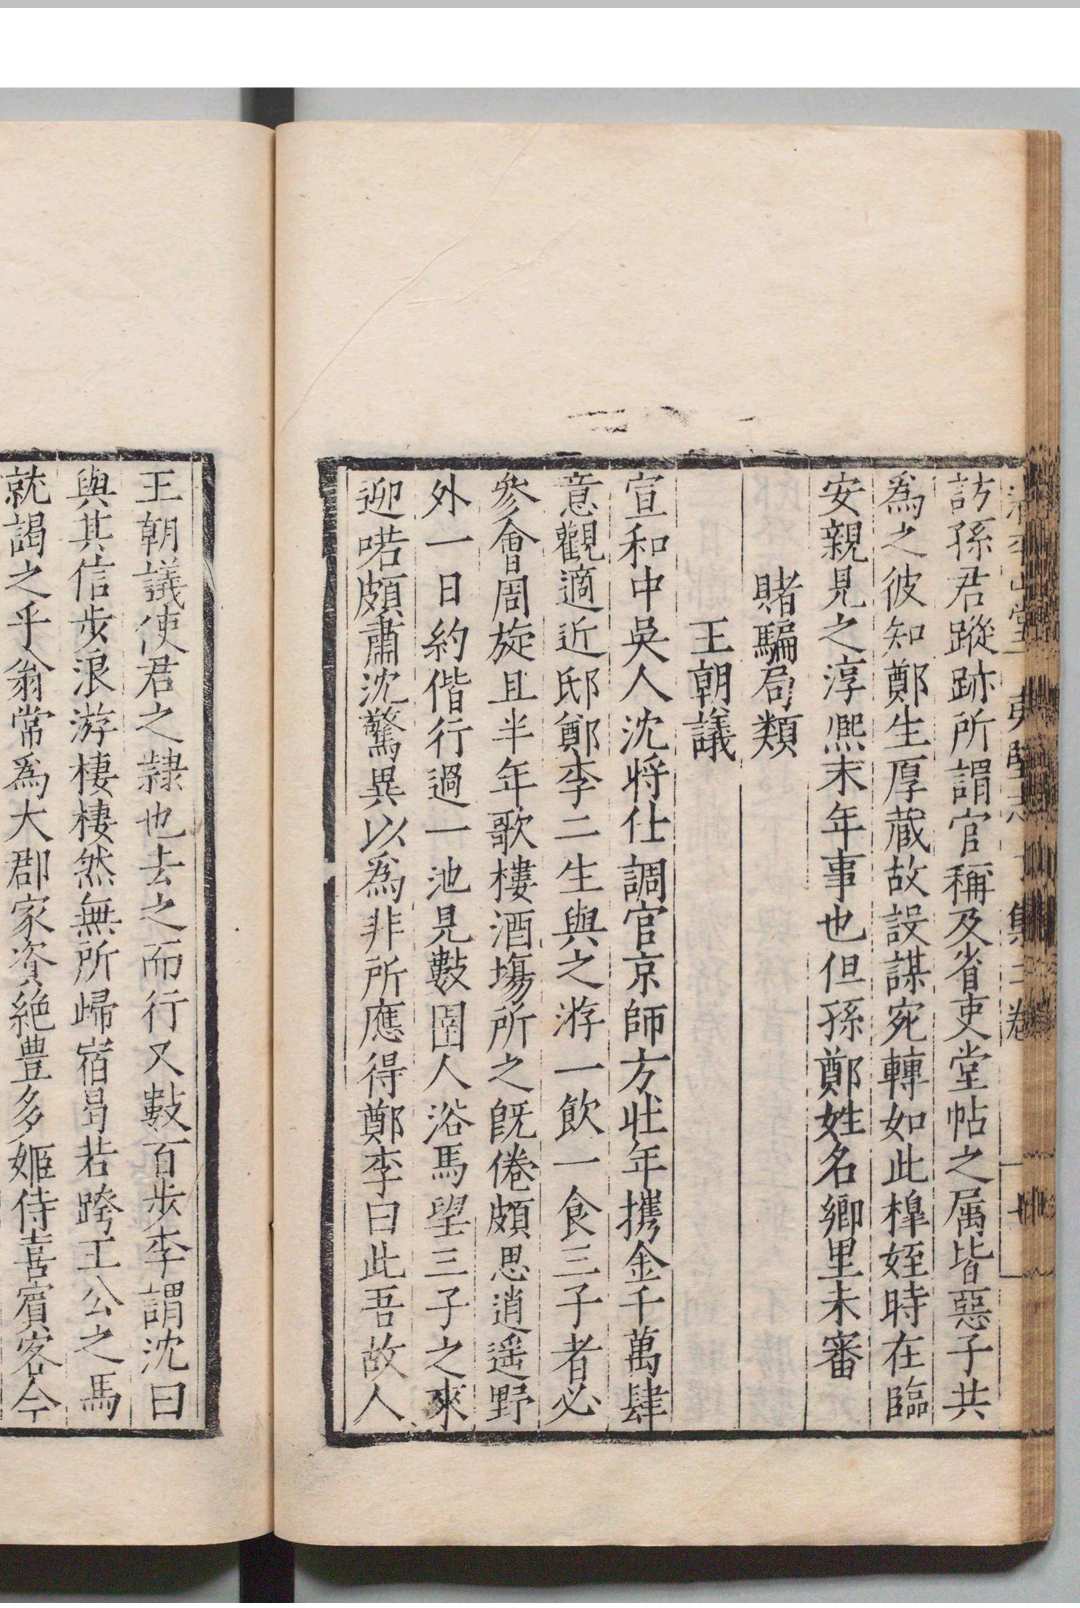 訪孫君蹤跡所謂官稱及省吏堂帖之属皆惡子共
爲之彼知鄭生厚蔵故設謀宛轉如此橰姪時在臨
安親見之淳熙末年事也但孫鄭姓名鄉里未審
賭騙局類
王朝議
宣和中吳人沈将仕調官京師方壯年攜金千萬肆
意觀適近邸鄭李二生與之游一飲一食三子者必
參會周旋且半年歌樓酒塲所之旣倦頗思逍遥野
外一日約偕行過一池見數圉人浴馬望三子之來
迎喏頗肅沈驚異以爲非所應得鄭李曰此吾故人
王朝議使君之隸也去之而行又數百步李謂沈曰
與其信步浪游棲棲然無所歸宿曷若跨王公之馬
就謁之乎翁常爲大郡家資絶豊多姬侍喜賓客今